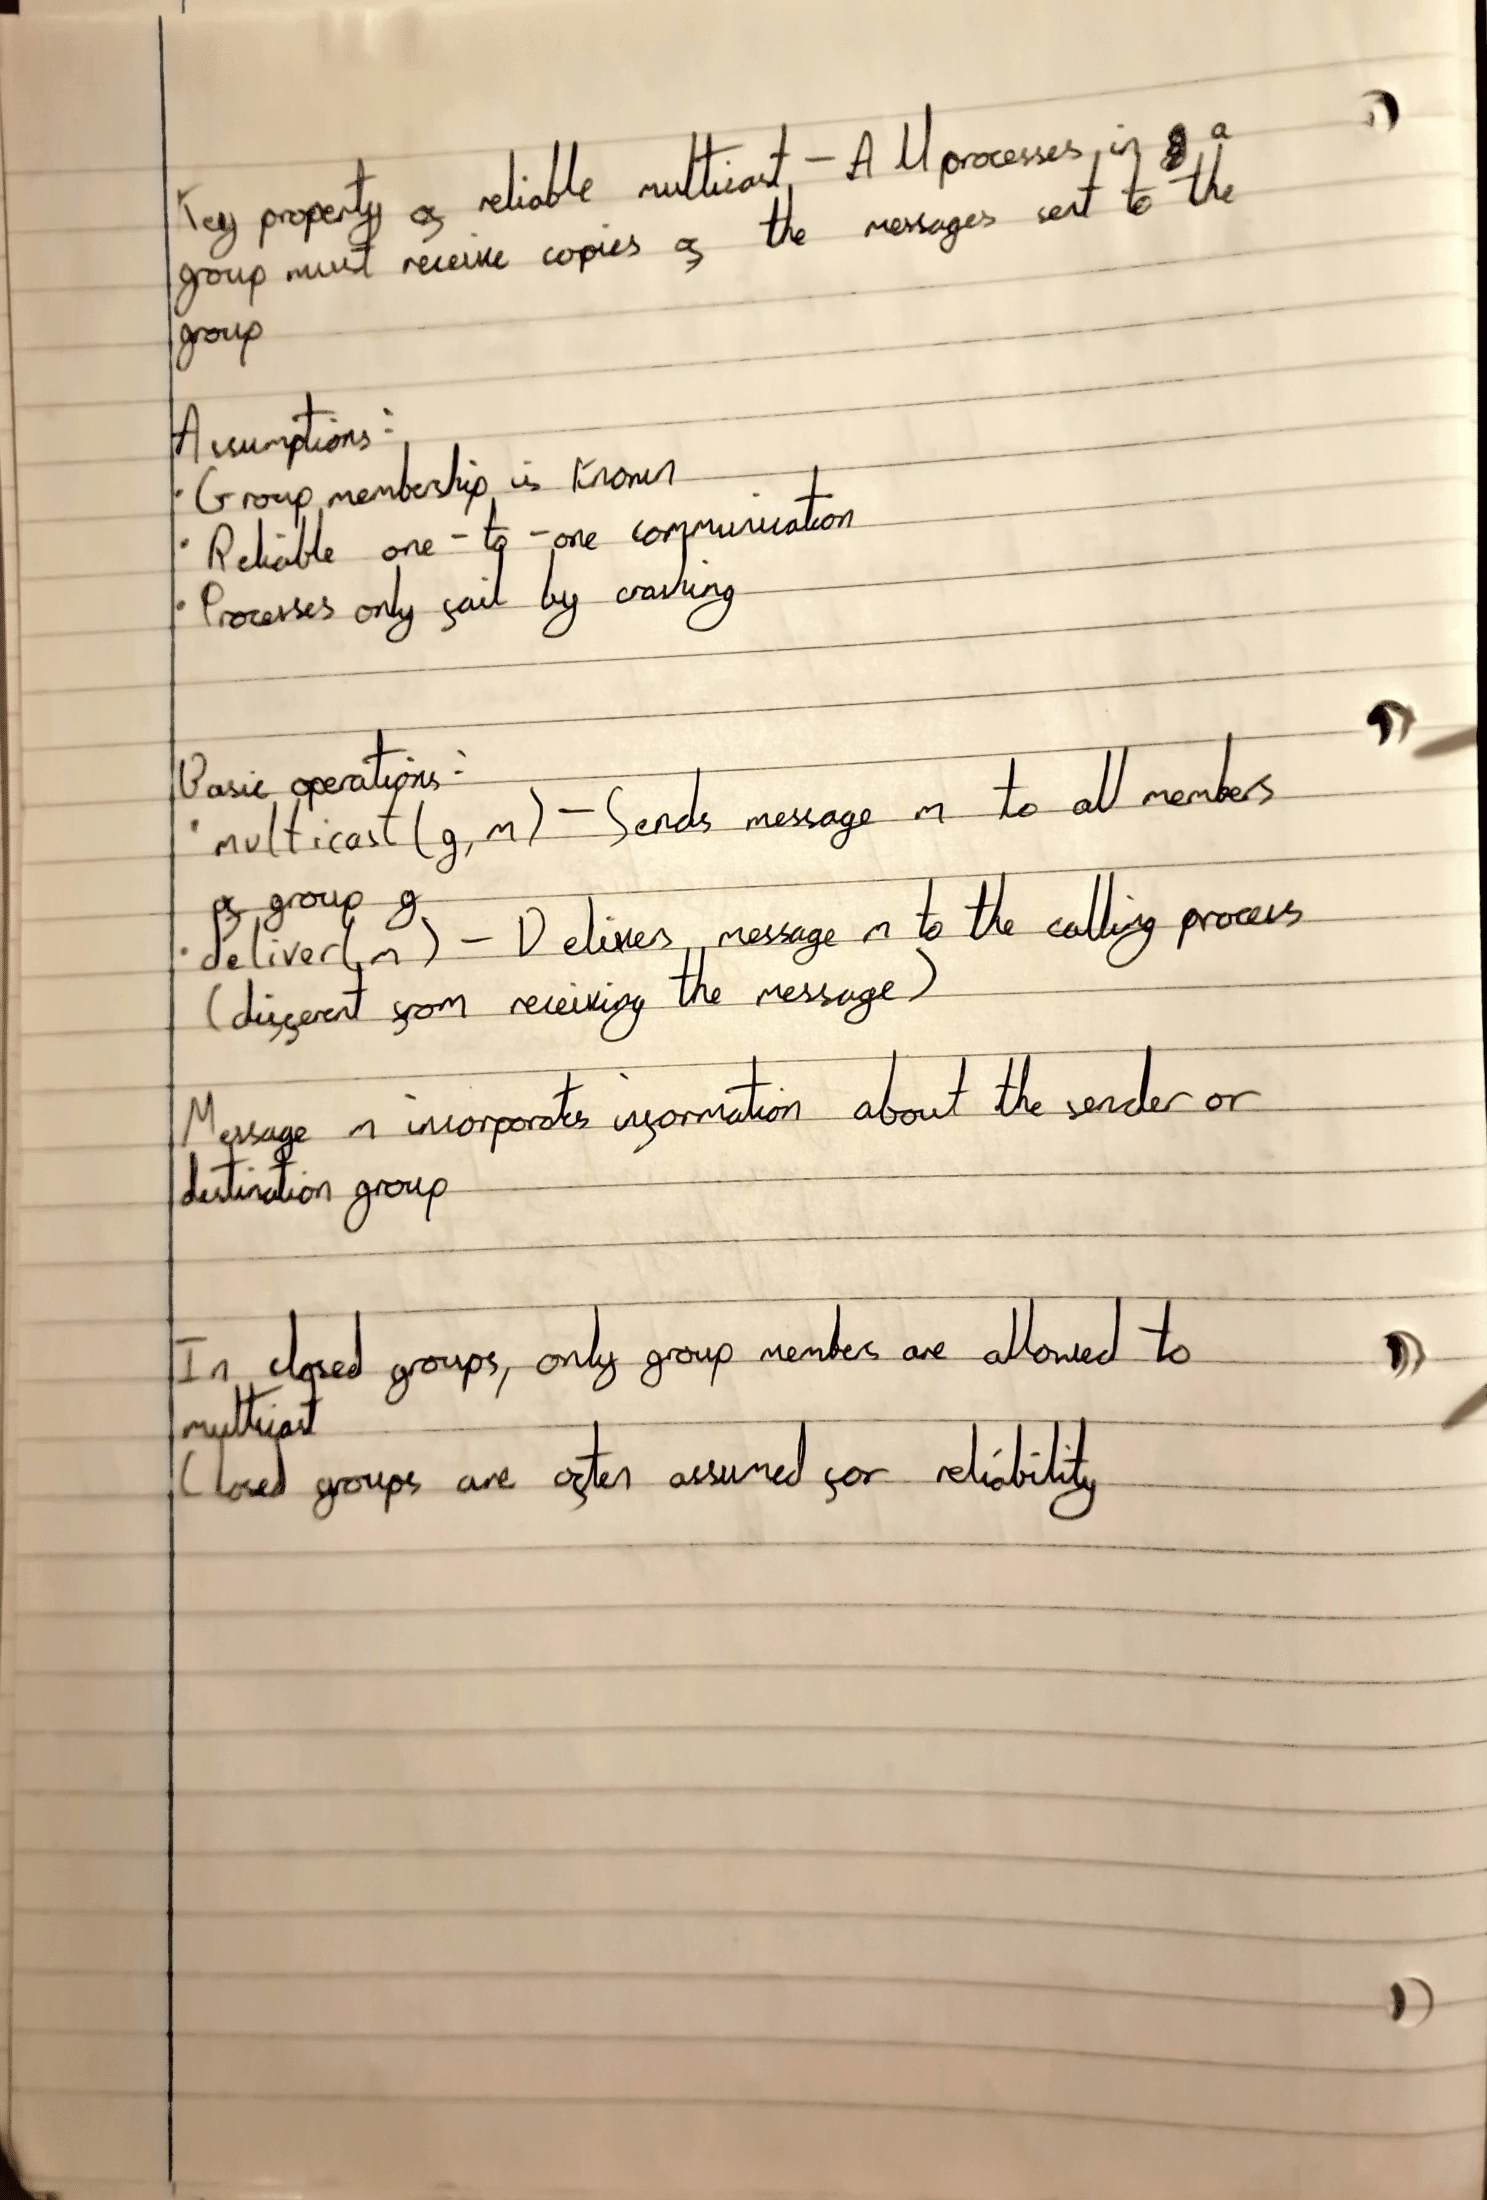 Key property of reliable multicast - All processes in a
group must receive copies of the messages sent to the
group
Assumptions:
• Group membership is known
• Reliable one-to-one communication
• Processes only fail by crashing
Basic operations:
• multicast(g, m) - Sends message m to all members
of group g
• deliver(m) - Delivers message m to the calling process
(different from receiving the message)
Message m incorporates information about the sender or
destination group
In closed groups, only group members are allowed to
multicast
Closed groups are often assumed for reliability